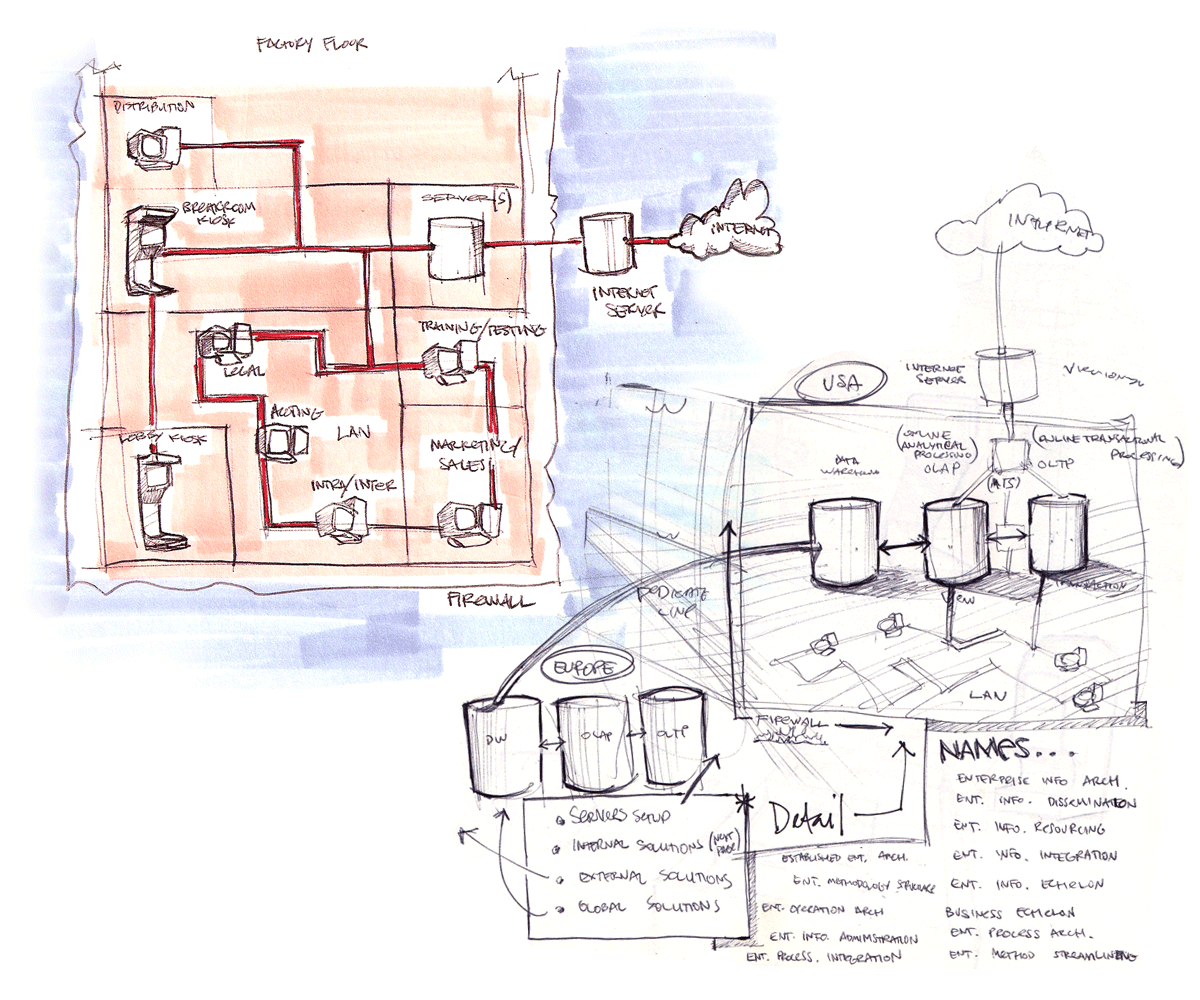 FACTORY FLOOR
DISTRIBUTION
BREAKROOM
KIOSK
SERVER(S)
INTERNET
INTERNET
SERVER
TRAINING/TESTING
LEGAL
ACCTING
LAN
LOBBY KIOSK
MARKETING/
SALES
INTRA/INTER
FIREWALL
INTERNET
USA
INTERNET
SERVER
(ONLINE
ANALYTICAL
PROCESSING)
OLAP
(ONLINE TRANSACTIONAL
PROCESSING)
OLTP
(MTS)
DATA
WAREHOUSING
TRANSACTION
DEDICATE
LINE
LAN
EUROPE
DW
OLAP
OLTP
FIREWALL
Detail
SERVERS SETUP
INTERNAL SOLUTIONS (NEXT
PAGE)
EXTERNAL SOLUTIONS
GLOBAL SOLUTIONS
NAMES...
ENTERPRISE INFO ARCH.
ENT. INFO. DISSEMINATION
ENT. INFO. RESOURCING
ENT. INFO. INTEGRATION
ENT. INFO. ECHELON
BUSINESS ECHELON
ENT. PROCESS ARCH.
ENT. METHOD STREAMLINING
ESTABLISHED ENT. ARCH.
ENT. METHODOLOGY STRUCTURE
ENT. OPERATION ARCH
ENT. INFO ADMIMSTRATION
ENT. PROCESS. INTEGRATION